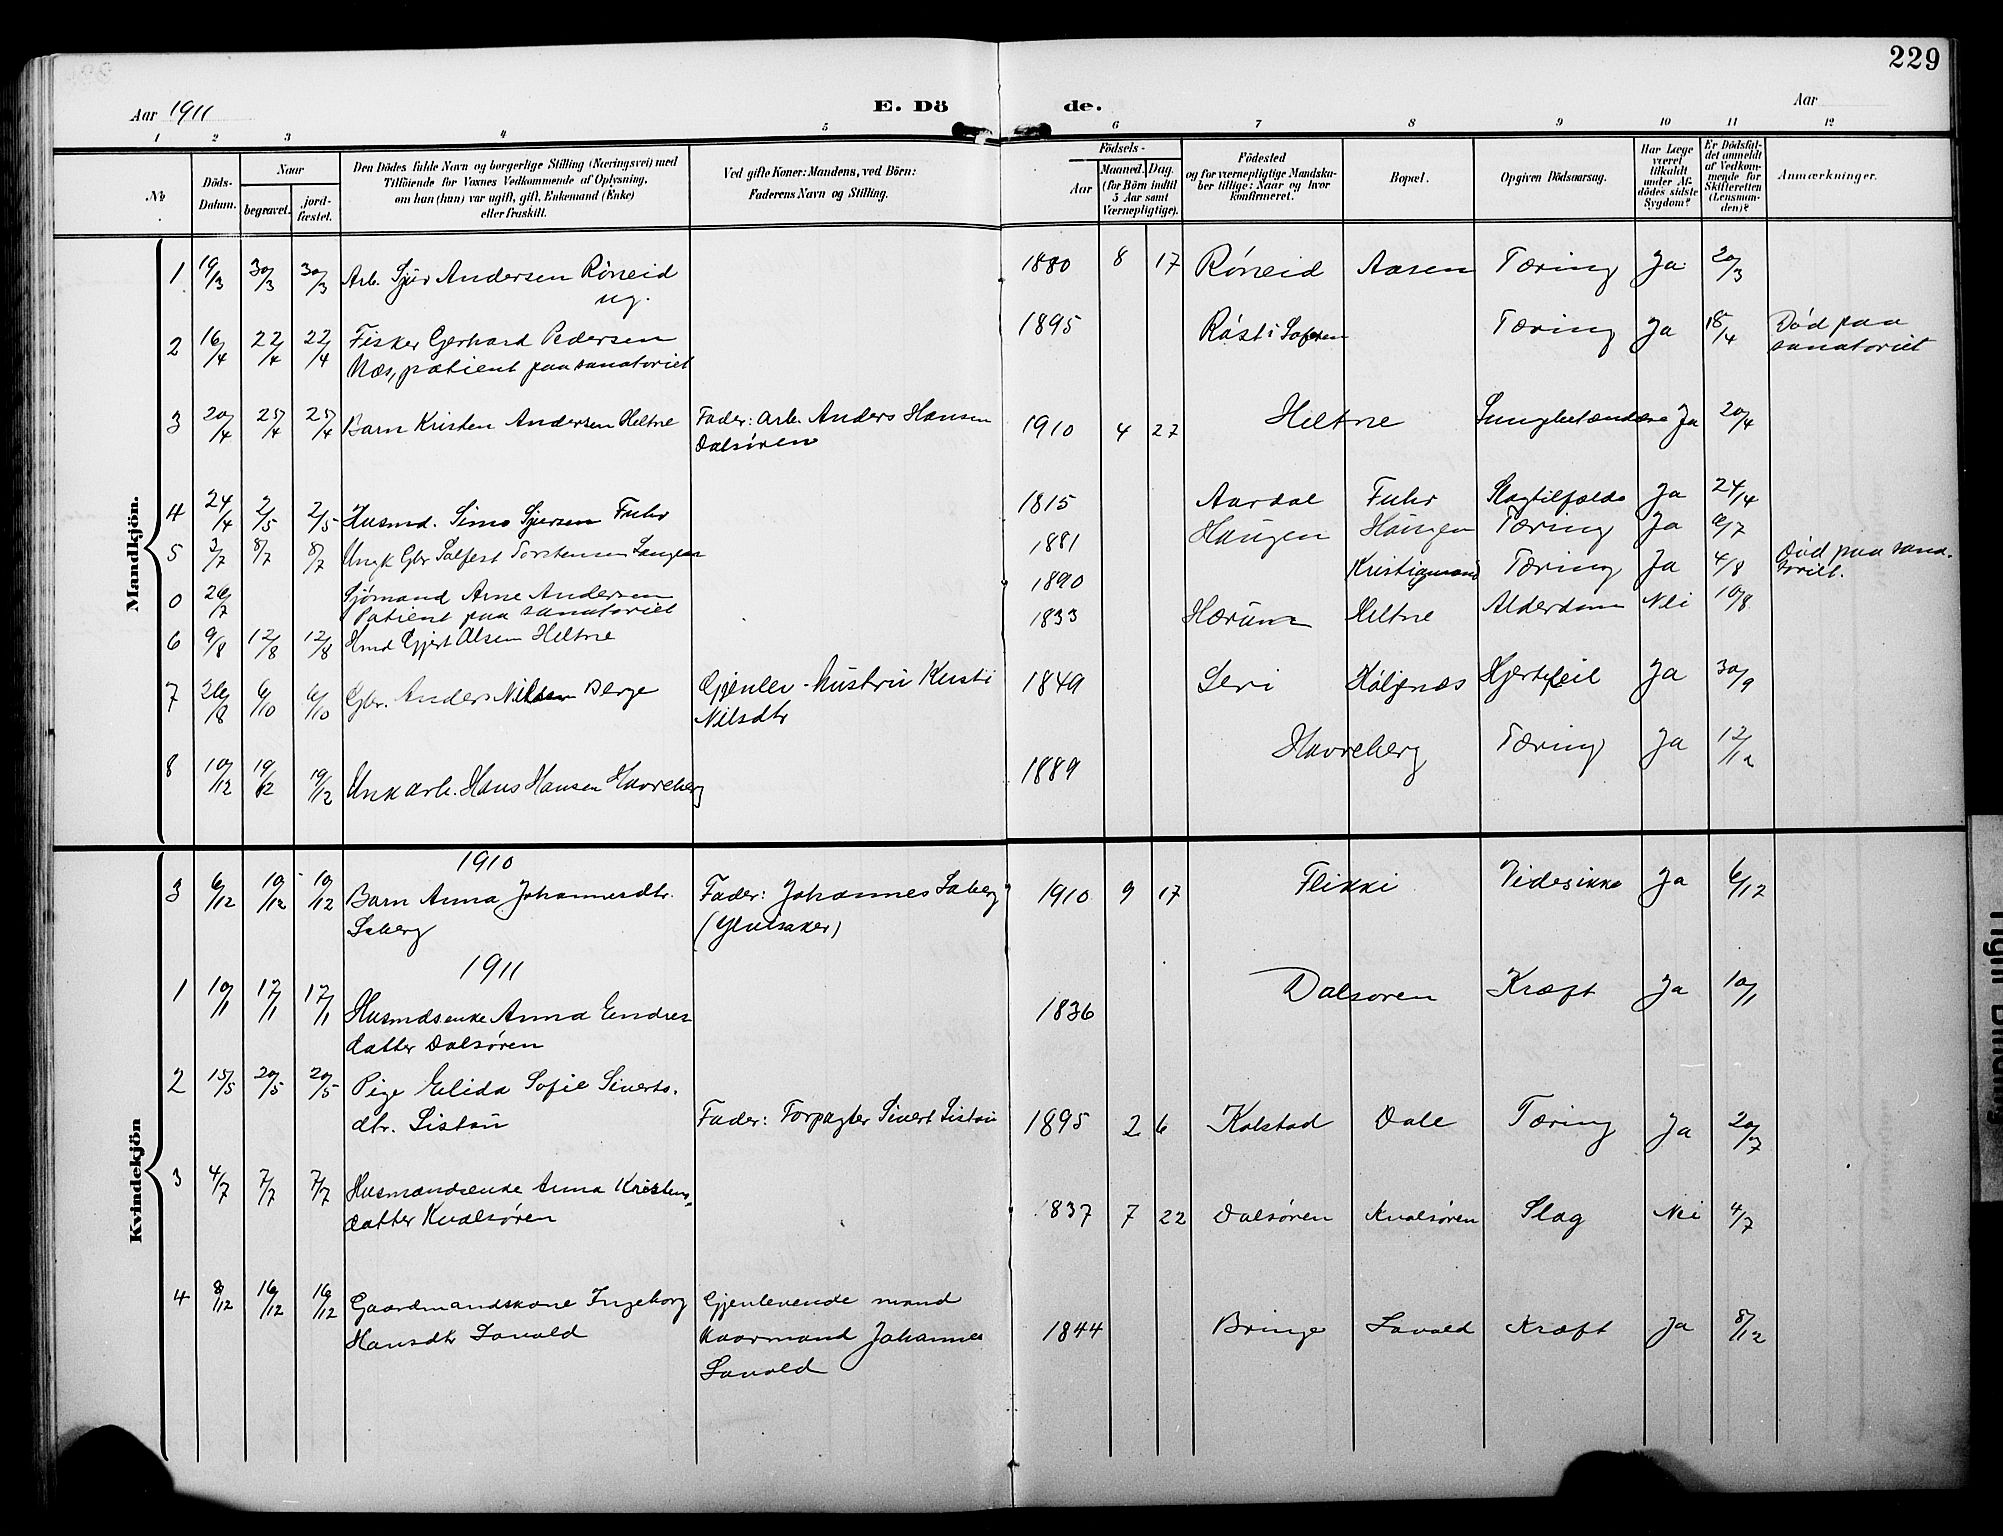 229
Aar 1911 E. Dö de. Aar
1 2 3 4 5 6 7 8 9 10 11 12
No
Döds-Datum.
Naar
begravet.
jord-fæstet.
Den Dödes fulde Navn og borgerlige Stilling (Næringsvei) med
Tilföiende for Voxnes Vedkommende af Oplysning,
om han (hun) var ugift, gift, Enkemand (Enke)
eller fraskilt.
Ved gifte Koner: Mandens, ved Börn:
Faderens Navn og Stilling.
Födsels-
Aar
Maaned. Dag.
(for Börn indtil
5 Aar samt
Værnepligtige).
Födested
og for værnepligtige Mandska-
ber tillige: Naar og hvor
konfirmeret.
Bopæl.
Opgiven Dödsaarsag.
Har Læge
været
tilkaldt
under Af-
dödes sidste
Sygdom?
Er Dödsfal-
det anmeldt
af Vedkom-
mende for
Skifteretten
(Lensman-
den)?
Anmærkninger.
Mandkjön.
1 19/3 30/3 30/3 Arb. Sjur Andersen Røneid 1880 8 17 Røneid Aasen Tæring Ja 20/3
ug.
2 16/4 22/4 22/4 Fisker Gerhard Pedersen 1895 Røst i Lofoten Tæring Ja 18/4 Død paa
Næs, patient paa sanatoriet sanatoriet
3 20/4 25/4 25/4 Barn Kristen Andersen Heltne Fader: arb. Anders Hansen 1910 4 27 Heltne Lungebetændelse Ja 20/4
Dalsøren
4 24/4 2/5 2/5 Husmd. Simo Sjursen Fuhr 1815 Aardal Fuhr Slagtilfælde Ja 24/4
5 2/7 8/7 8/7 Ungk Gbr Torstensen 1881 Haugen Haugen Tæring Ja 6/7
0 26/7 Sjømand Arne Andersen 1890 Kristiansund Tæring Ja 4/8 Død paa sana-
Patient paa sanatoriet toriet.
6 9/8 12/8 12/8 Hmd Gjert Olsen Heltne 1833 Hærum Heltne Alderdom Nei 10/8
7 26/8 6/10 6/10 Gbr. Anders Nilsen Berge Gjenlev. hustru Kristi 1849 Leri Køljenæs Hjertefeil Ja 30/9
Nilsdtr
8 10/12 19/12 19/12 Unk arb. Hans Hansen Havreberg 1889 Havreberg Tæring Ja 12/12
Kvindekjön
1910
3 6/12 10/12 10/12 Barn Anna Johannesdtr. Fader: Johannes Laberg 1910 9 17 Flikki Vides ikke Ja 6/12
Laberg (Ylvisaker)
1911
1 10/1 17/1 17/1 Husmdsenke Anna Endres 1836 Dalsøren Kræft Ja 10/1
datter Dalsøren
2 15/5 20/5 20/5 Pige Elida Sofie Siverts-
dtr. Listou Fader: Forpagter Sivert Listou 1895 2 6 Kolstad Dale Tæring Ja 20/7
3 4/7 7/7 7/7 Husmandsenke Anna Kristens-
datter Kvalsøren 1837 7 22 Dalsøren Kvalsøren Slag Nei 4/7
4 8/12 16/12 16/12 Gaardmandskone Ingeborg Gjenlevende mand
Hansdtr Lavold Kaarmand Johannes 1844 Bringe Lavold Kræft Ja 8/12
Lavold